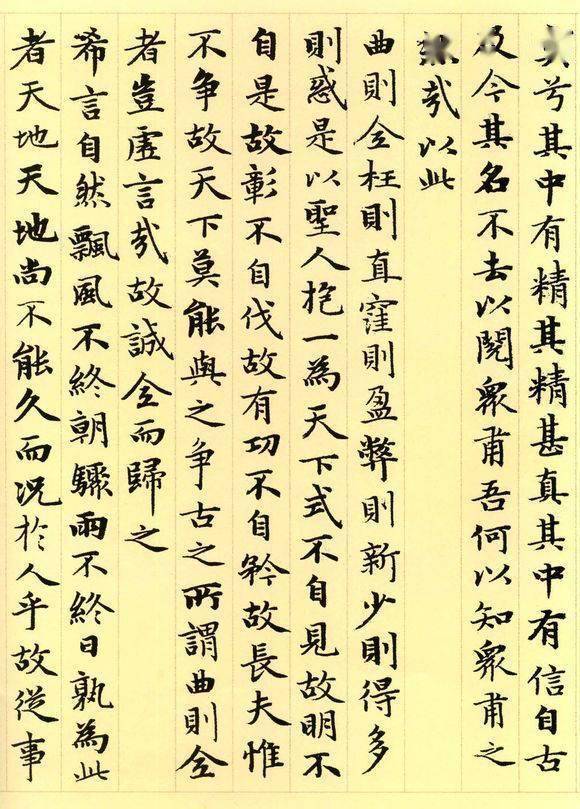 兮其中有精其精甚真其中有信自古
及今其名不去以閱衆甫吾何以知衆甫之
哉以此
曲則全枉則直窪則盈弊則新少則得多
則惑是以聖人抱一為天下式不自見故明不
自是故彰不自伐故有功不自矜故長夫惟
不争故天下莫能與之争古之所謂曲則全
者豈虛言哉故誠全而歸之
希言自然飄風不終朝驟雨不終日孰為此
者天地天地尚不能久而况於人乎故從事